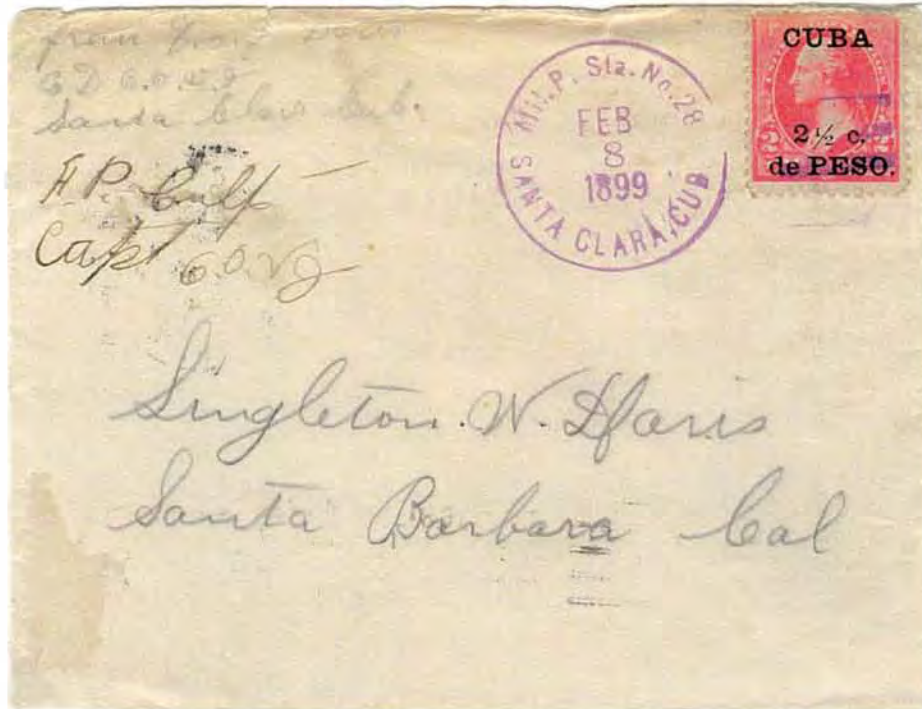 from
Co D 6.O.V.I
Santa Clara Cub.
H.P.
Capt 6.O.V.I
Mil. P. Sta. No. 28
FEB
8
1899
SANTA CLARA, CUB
CUBA
2
2
2½ c.
de PESO.
Singleton. W. Davis
Santa Barbara Cal